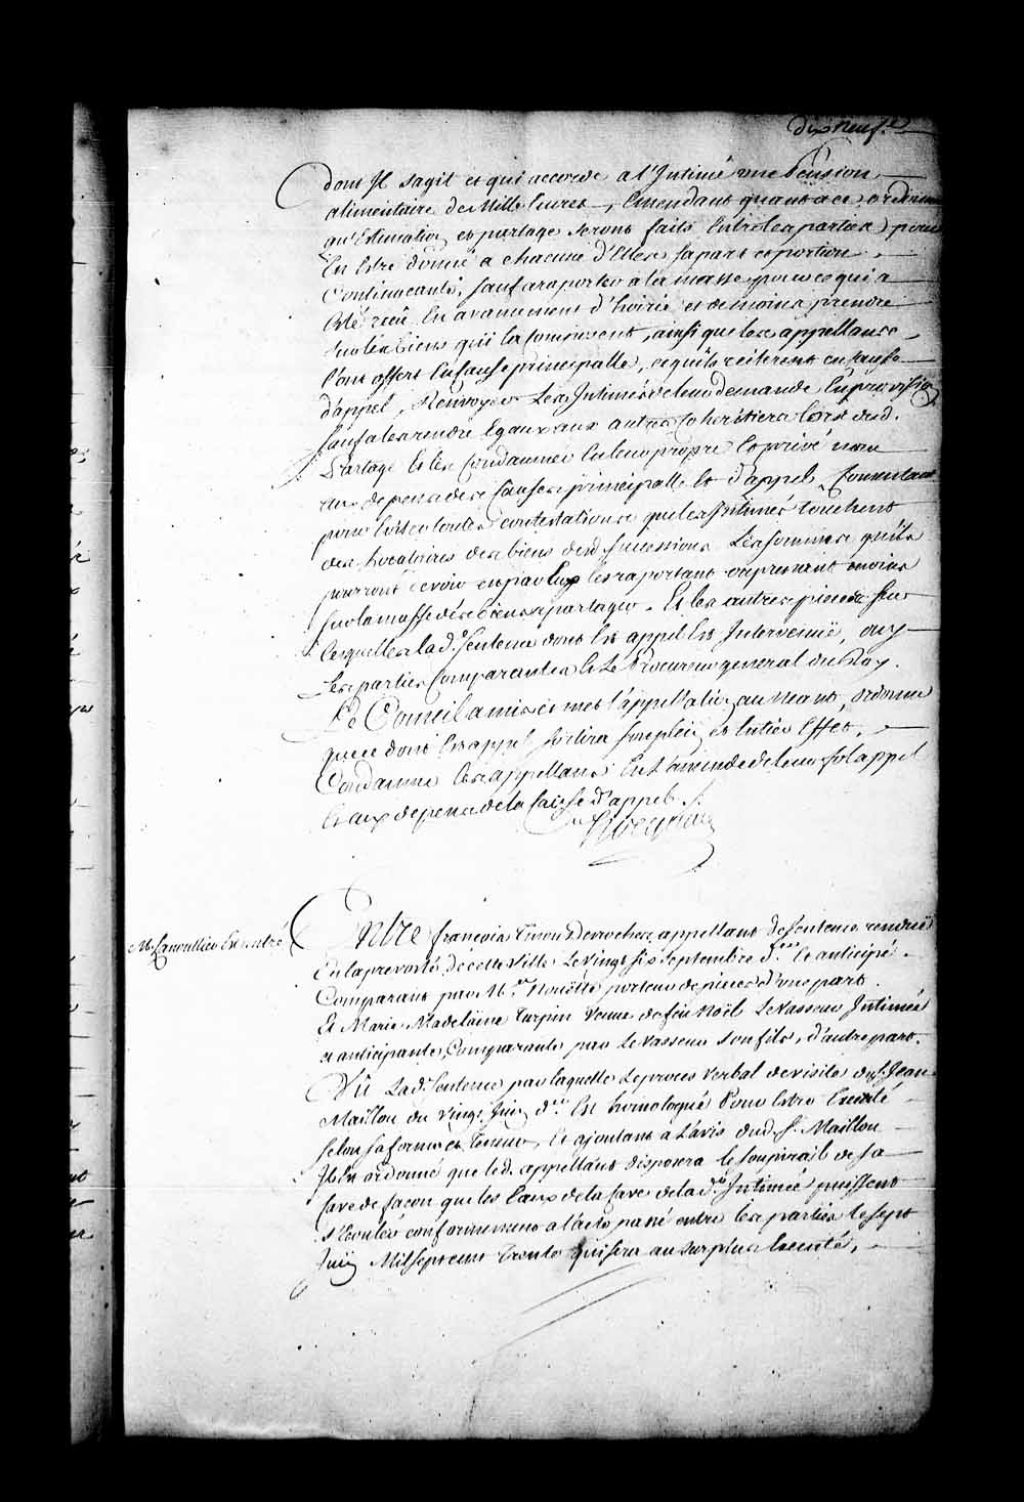 dix neuf.e
dont Il sagit et qui accorde a l'Intimé une Pension
alimentaire de Mille livres, Emendant quant a ce ordonner
qu'Estimation et partage seront faits Entre les parties pour
En Estre donné a chacune d'Elles sa part et portion
Contingeante, sauf a raporter a la masse pour ce qui a
Esté recu En avancement d'hoirie et de moins prendre
sur les biens qui la composent, ainsi que les appellans
l'ont offert En cause principalle, ce qu'ils reiterent en cause
d'appel, Renvoyer Les Intimés de leur demande En provision
sauf a les rendre Egaux aux autres Coheritiers lors dud.
Partage Et les Condamner En leur propre Et privé nom
aux depens des Causes principalle Et d'appel, Consentant
pour Eviter toutes contestations que les Intimés touchent
des locataires des biens desd. successions Les sommes qu'ils
pourront devoir en par Eux les raportant ou prenant moins
sur la masse des biens a partager. Et les autres pieces sur
lesquelles lad.e sentence dont Est appel Est Intervenüe, ouy
Les parties Comparantes Et Le Procureur general du Roy.
Le Conseil a mis et met l'appellation au neant, ordonne
que ce dont Est appel sortira son plein et Entier Effet,
Condamne les appellans En L'amende de leur fol appel
Et aux depens de la Cause d'appel ./.
Entre françois Tinon Desroches appellant de sentence rendüe
En la prevosté de cette ville Le vingt six septembre d.er Et anticipé
Comparant par M.e Noüette porteur de pieces d'une part
Et Marie Madelaine Turpin veuve de feu Noël Levasseur Intimée
et anticipante, Comparante par Levasseur son fils, d'autre part.
Vû Lad.e sentence par laquelle Le proces verbal de visite du S. Jean
Maillou du vingt Juin d.er Est homologué Pour Estre Executé
selon sa forme et Teneur, Et ajoutant a L'avis dud. S. Maillou
Il Est ordonné que led. appellant disposera le soupirail de sa
Cave de façon que les Eaux de la Cave de lad.e Intimée puissent
s'Ecouler conformement a l'acte passé entre les parties le sept
Juin Mil sept cent Trente qui sera au surplus Executé,